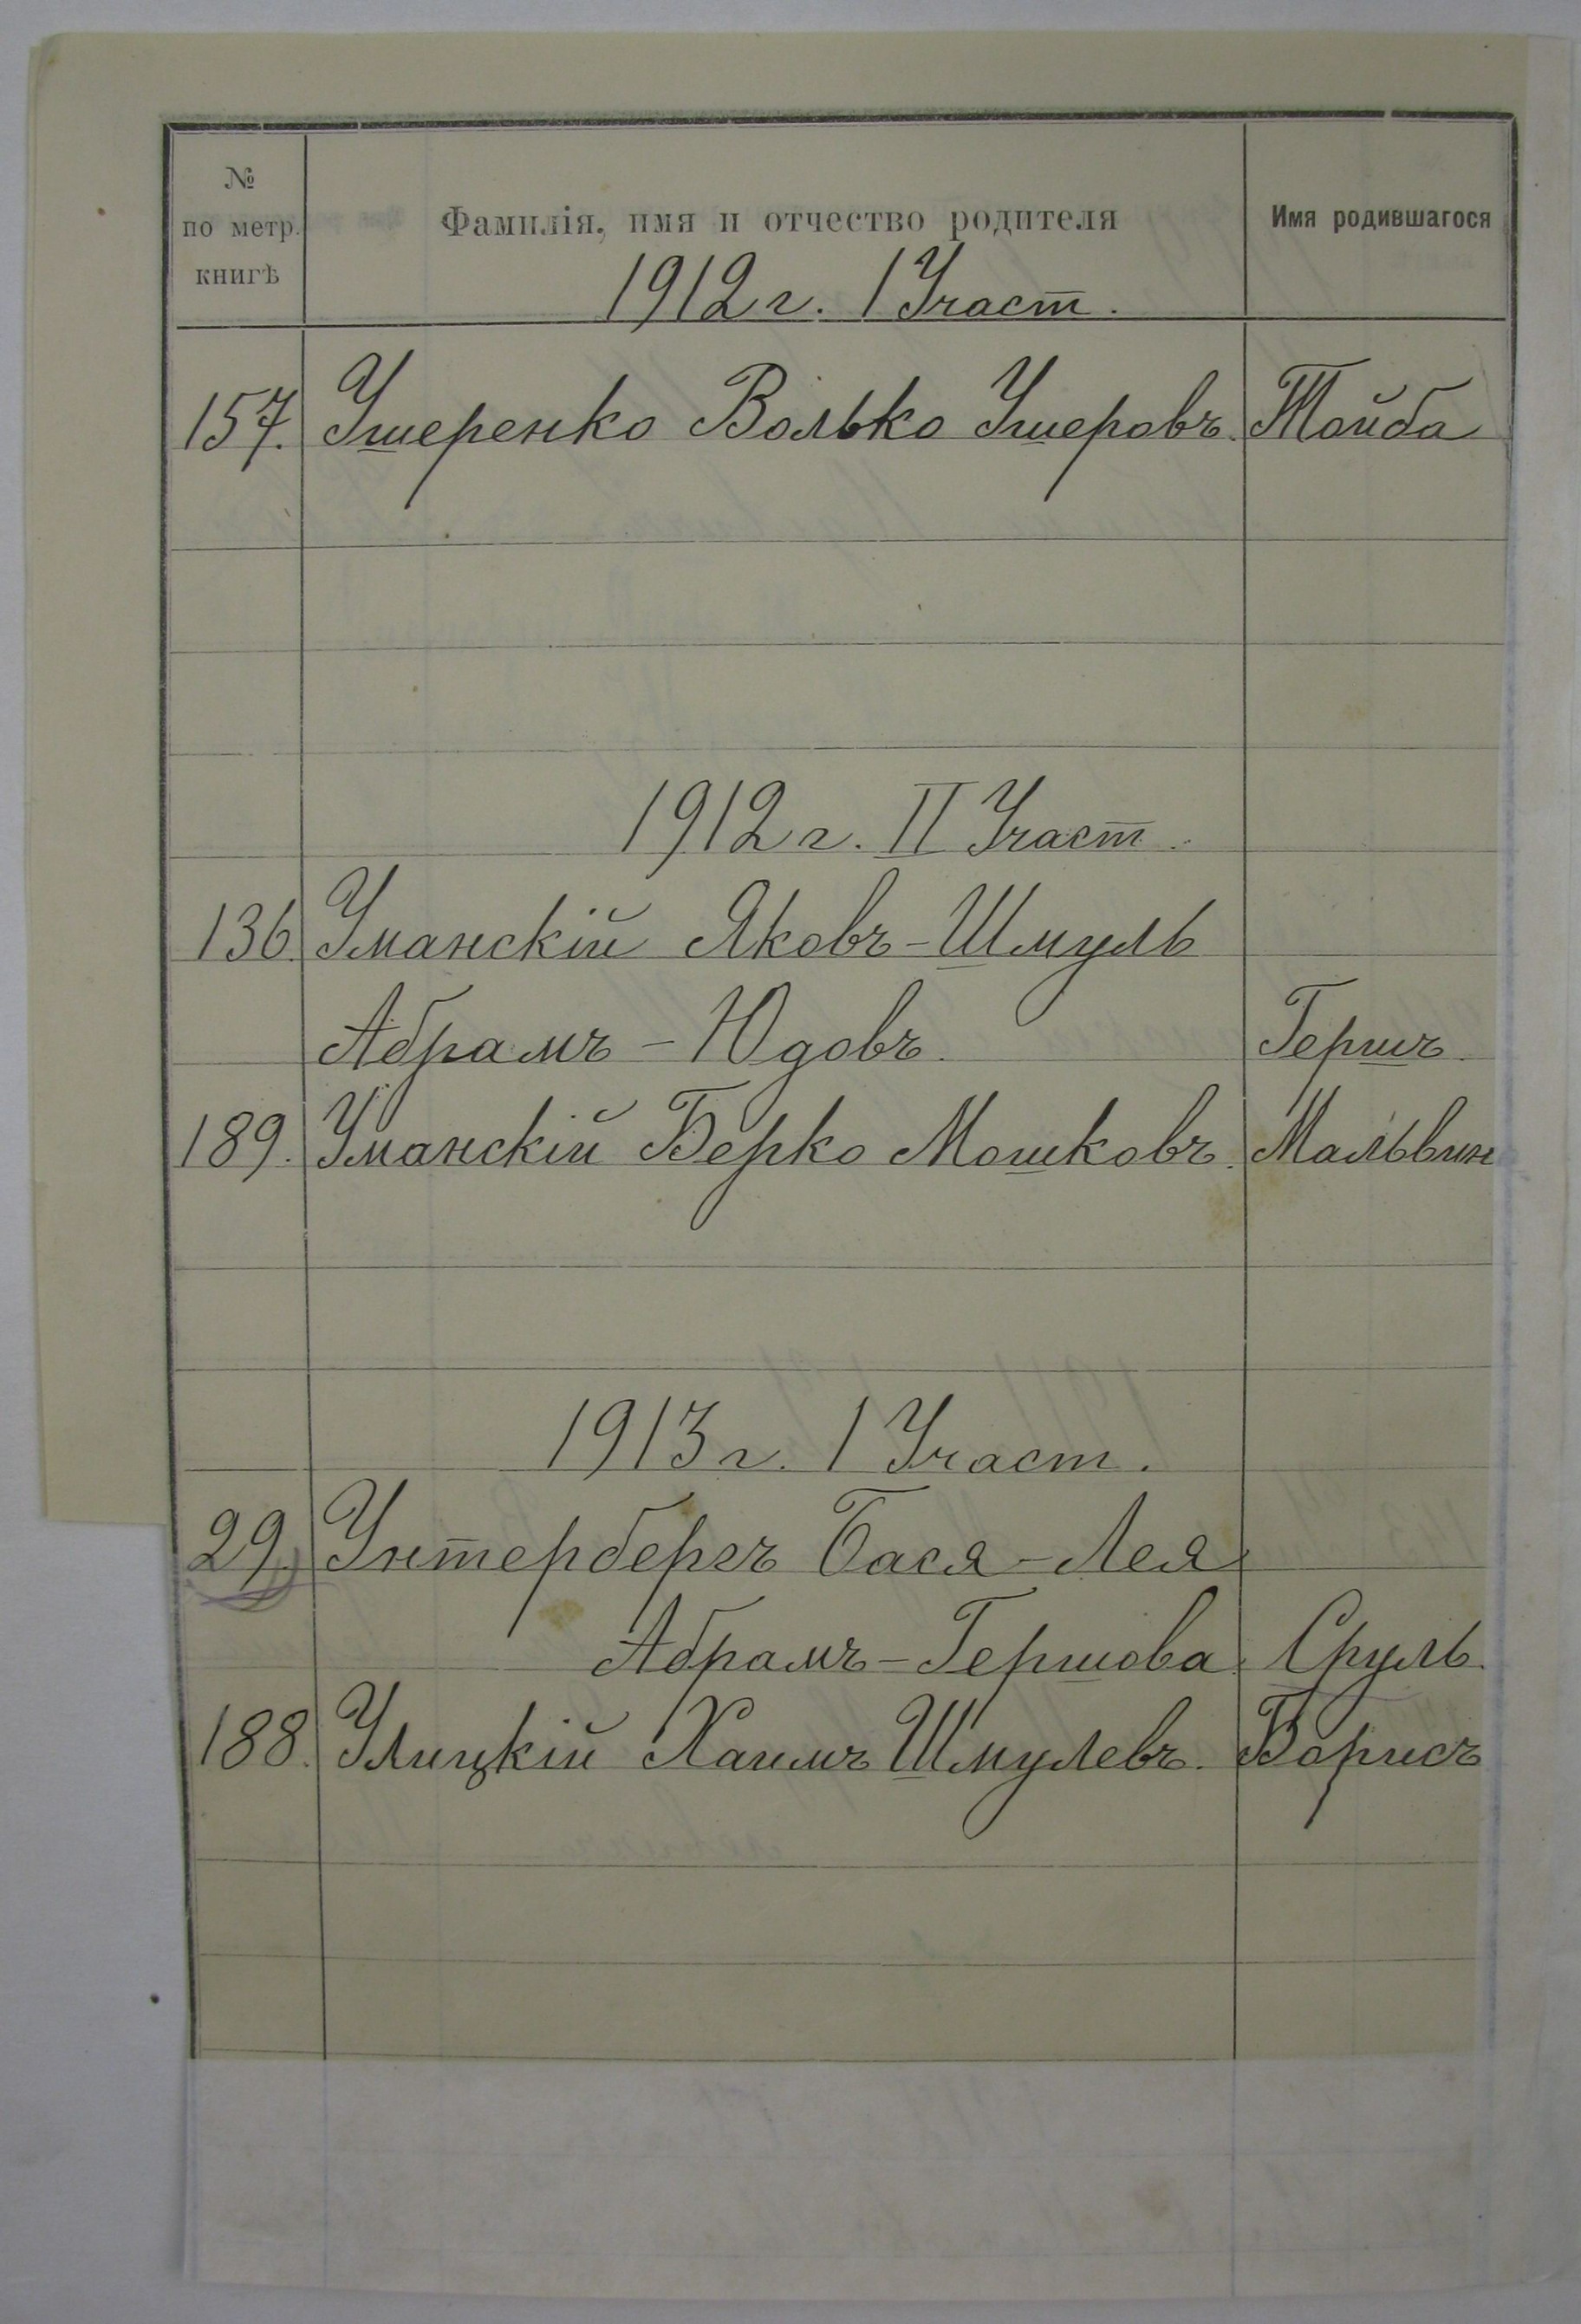 № по метр. книгѣ Фамилія, имя и отчество родителя Имя родившагося
1912 г. I Участ.
157. Ушеренко Волько Ушеровъ. Тойба
1912 г. II Участ.
136. Уманскій Яковъ-Шмуль
Абрамъ-Юдовъ. Гершъ.
189. Уманскій Берко Мошковъ. Мальвин
1913 г. I Участ.
29. Унтербергъ Бася-Лея
Абрамъ-Гершова. Сруль.
188. Улицкій Хаимъ Шмулевъ. Борисъ